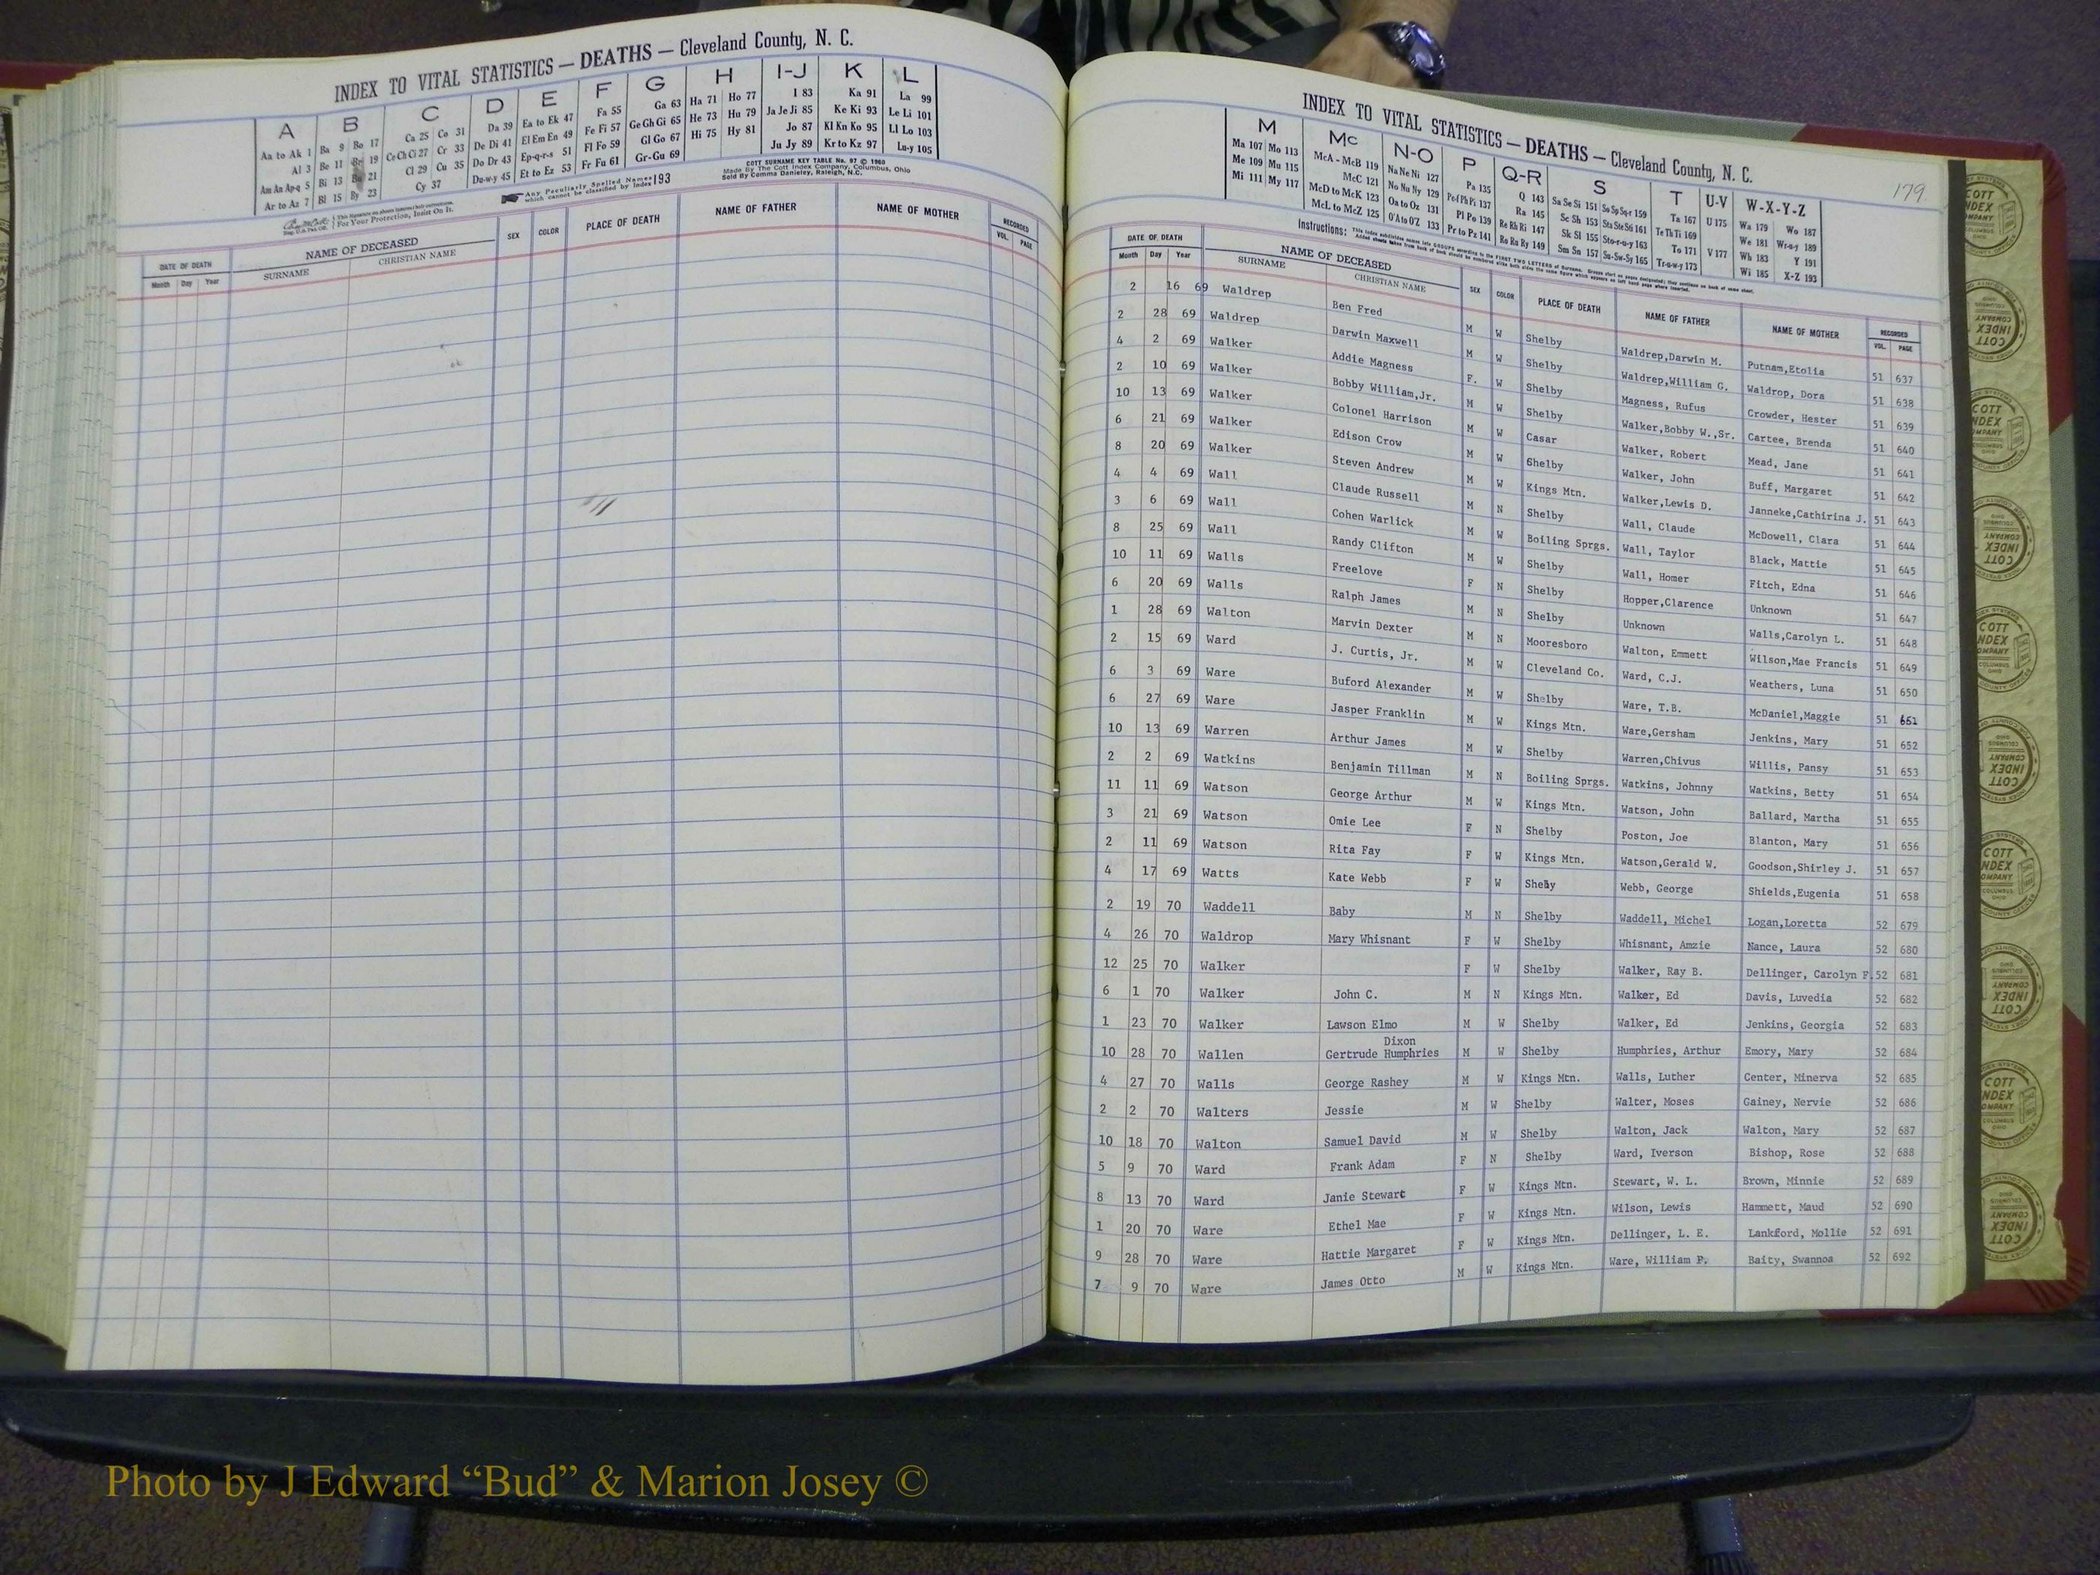 INDEX TO VITAL STATISTICS — DEATHS — Cleveland County, N. C.
A B C D E F G H I-J K L
Aa to Ak 1 Ba 9 Bo 17 Ca 25 Co 31 Da 39 Ea to Ek 47 Fa 55 Ga 63 Ha 71 Ho 77 I 83 Ka 91 La 99
Al 3 Be 11 Br 19 Ce Ch Ci 27 Cr 33 De Di 41 El Em En 49 Fe Fi 57 Ge Gh Gi 65 He 73 Hu 79 Ja Je Ji 85 Ke Ki 93 Le Li 101
Am An Ap-q 5 Bi 13 Bu 21 Cl 29 Cu 35 Do Dr 43 Ep-q-r-s 51 Fl Fo 59 Gl Go 67 Hi 75 Hy 81 Jo 87 Kl Kn Ko 95 Ll Lo 103
Ar to Az 7 Bl 15 By 23 Cy 37 Du-w-y 45 Et to Ez 53 Fr Fu 61 Gr-Gu 69 Ju Jy 89 Kr to Kz 97 Lu-y 105
For Your Protection, Insist On It.
Any Peculiarly Spelled Names which cannot be classified by Index 193
COTT SURNAME KEY TABLE No. 97 © 1960
Made By The Cott Index Company, Columbus, Ohio
Sold By Comma Danieley, Raleigh, N.C.
DATE OF DEATH NAME OF DECEASED SEX COLOR PLACE OF DEATH NAME OF FATHER NAME OF MOTHER RECORDED
Month Day Year SURNAME CHRISTIAN NAME VOL. PAGE
179
INDEX TO VITAL STATISTICS — DEATHS — Cleveland County, N. C.
M Mc N-O P Q-R S T U-V W-X-Y-Z
Ma 107 Mo 113 McA - McB 119 Na Ne Ni 127 Pa 135 Q 143 Sa Se Si 151 So Sp Sq-r 159 Ta 167 U 175 Wa 179 Wo 187
Me 109 Mu 115 McC 121 No Nu Ny 129 Pe-f Ph Pi 137 Ra 145 Sc Sh 153 Sta Ste Sti 161 Te Th Ti 169 We 181 Wr-u-y 189
Mi 111 My 117 McD to McK 123 Oa to Oz 131 Pl Po 139 Re Rh Ri 147 Sk Sl 155 Sto-r-u-y 163 To 171 V 177 Wh 183 Y 191
McL to McZ 125 O'A to O'Z 133 Pr to Pz 141 Ro Ru Ry 149 Sm Sn 157 Su-Sw-Sy 165 Tr-u-w-y 173 Wi 185 X-Z 193
Instructions:
DATE OF DEATH NAME OF DECEASED SEX COLOR PLACE OF DEATH NAME OF FATHER NAME OF MOTHER RECORDED
Month Day Year SURNAME CHRISTIAN NAME VOL. PAGE
2 16 69 Waldrep Ben Fred M W Shelby Waldrep,Darwin M. Putnam,Etolia 51 637
2 28 69 Waldrep Darwin Maxwell M W Shelby Waldrep,William G. Waldrop, Dora 51 638
4 2 69 Walker Addie Magness F. W Shelby Magness, Rufus Crowder, Hester 51 639
2 10 69 Walker Bobby William,Jr. M W Shelby Walker,Bobby W.,Sr. Cartee, Brenda 51 640
10 13 69 Walker Colonel Harrison M W Casar Walker, Robert Mead, Jane 51 641
6 21 69 Walker Edison Crow M W Shelby Walker, John Buff, Margaret 51 642
8 20 69 Walker Steven Andrew M W Kings Mtn. Walker,Lewis D. Janneke,Cathirina J. 51 643
4 4 69 Wall Claude Russell M N Shelby Wall, Claude McDowell, Clara 51 644
3 6 69 Wall Cohen Warlick M W Boiling Sprgs. Wall, Taylor Black, Mattie 51 645
8 25 69 Wall Randy Clifton M W Shelby Wall, Homer Fitch, Edna 51 646
10 11 69 Walls Freelove F N Shelby Hopper,Clarence Unknown 51 647
6 20 69 Walls Ralph James M N Shelby Unknown Walls,Carolyn L. 51 648
1 28 69 Walton Marvin Dexter M N Mooresboro Walton, Emmett Wilson,Mae Francis 51 649
2 15 69 Ward J. Curtis, Jr. M W Cleveland Co. Ward, C.J. Weathers, Luna 51 650
6 3 69 Ware Buford Alexander M W Shelby Ware, T.B. McDaniel,Maggie 51 651
6 27 69 Ware Jasper Franklin M W Kings Mtn. Ware,Gersham Jenkins, Mary 51 652
10 13 69 Warren Arthur James M W Shelby Warren,Chivus Willis, Pansy 51 653
2 2 69 Watkins Benjamin Tillman M N Boiling Sprgs. Watkins, Johnny Watkins, Betty 51 654
11 11 69 Watson George Arthur M W Kings Mtn. Watson, John Ballard, Martha 51 655
3 21 69 Watson Omie Lee F N Shelby Poston, Joe Blanton, Mary 51 656
2 11 69 Watson Rita Fay F W Kings Mtn. Watson,Gerald W. Goodson,Shirley J. 51 657
4 17 69 Watts Kate Webb F W Shelby Webb, George Shields,Eugenia 51 658
2 19 70 Waddell Baby M N Shelby Waddell, Michel Logan,Loretta 52 679
4 26 70 Waldrop Mary Whisnant F W Shelby Whisnant, Amzie Nance, Laura 52 680
12 25 70 Walker F W Shelby Walker, Ray B. Dellinger, Carolyn F. 52 681
6 1 70 Walker John C. M N Kings Mtn. Walker, Ed Davis, Luvedia 52 682
1 23 70 Walker Lawson Elmo M W Shelby Walker, Ed Jenkins, Georgia 52 683
Dixon
10 28 70 Wallen Gertrude Humphries M W Shelby Humphries, Arthur Emory, Mary 52 684
4 27 70 Walls George Rashey M W Kings Mtn. Walls, Luther Center, Minerva 52 685
2 2 70 Walters Jessie M W Shelby Walter, Moses Gainey, Nervie 52 686
10 18 70 Walton Samuel David M W Shelby Walton, Jack Walton, Mary 52 687
5 9 70 Ward Frank Adam F N Shelby Ward, Iverson Bishop, Rose 52 688
8 13 70 Ward Janie Stewart F W Kings Mtn. Stewart, W. L. Brown, Minnie 52 689
1 20 70 Ware Ethel Mae F W Kings Mtn. Wilson, Lewis Hammett, Maud 52 690
9 28 70 Ware Hattie Margaret F W Kings Mtn. Dellinger, L. E. Lankford, Mollie 52 691
7 9 70 Ware James Otto M W Kings Mtn. Ware, William P. Baity, Swannoa 52 692
COTT INDEX COMPANY COLUMBUS OHIO
Photo by J Edward “Bud” & Marion Josey ©